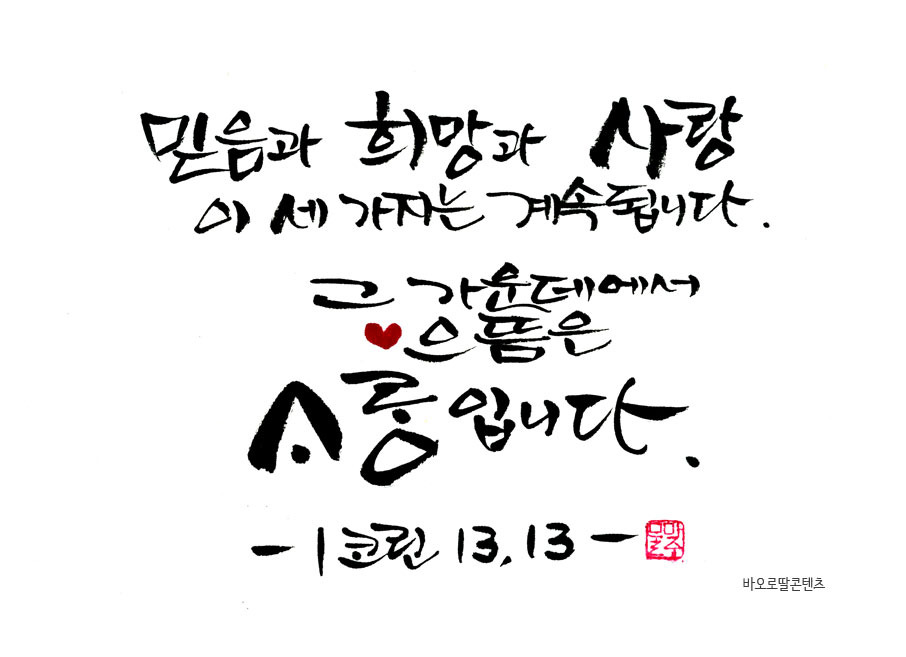 믿음과 희망과 사랑
이 세 가지는 계속됩니다.
그 가운데에서
으뜸은
ᄉᆞᄅᆞᆼ입니다.
- 1 코린 13, 13 -
바오로딸콘텐츠